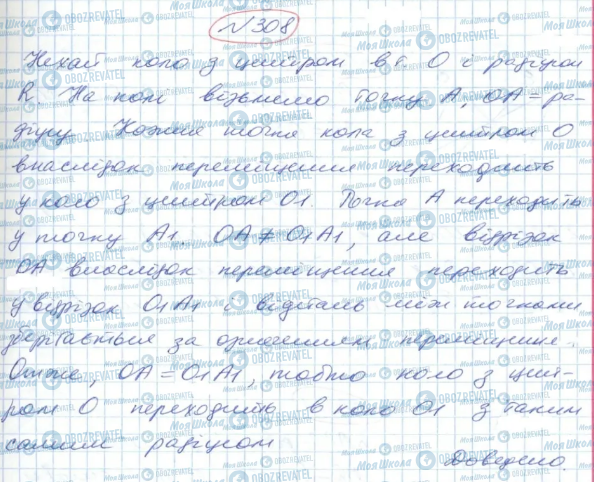 №308
Нехай коло з центром в т. О і радіусом
R. На колі візьмемо точку А. ОА = ра-
діусу. Кожна точка кола з центром О
внаслідок переміщення переходить
у коло з центром О1. Точка А переходить
у точку А1. ОА ≠ О1А1, але відрізок
ОА внаслідок переміщення переходить
у відрізок О1А1 і відстань між точками
зберігається за означенням переміщення.
Отже, ОА = О1А1, тобто коло з цент-
ром О переходить в коло О1 з таким
самим радіусом
Доведено.